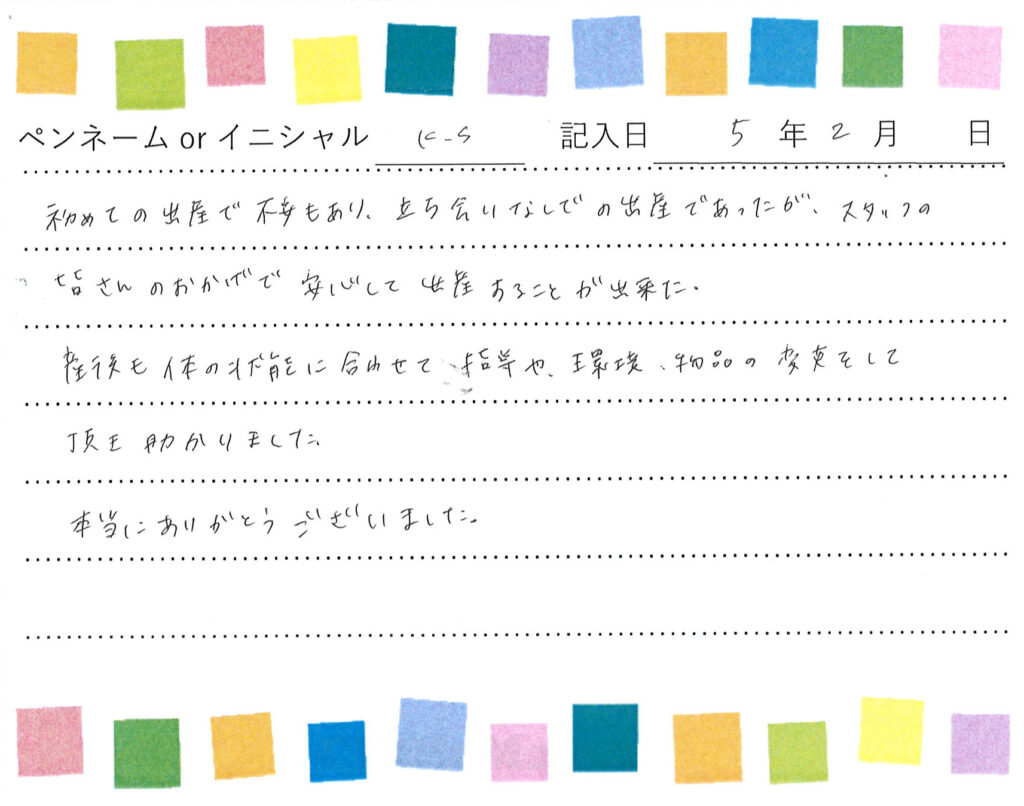 ペンネーム or イニシャル K-S 記入日 5 年 2 月 日
初めての出産で不安もあり、立ち会いなしでの出産であったが、スタッフの
皆さんのおかげで安心して出産することが出来た。
産後も体の状態に合わせて指導や、環境、物品の変更をして
頂き助かりました。
本当にありがとうございました。